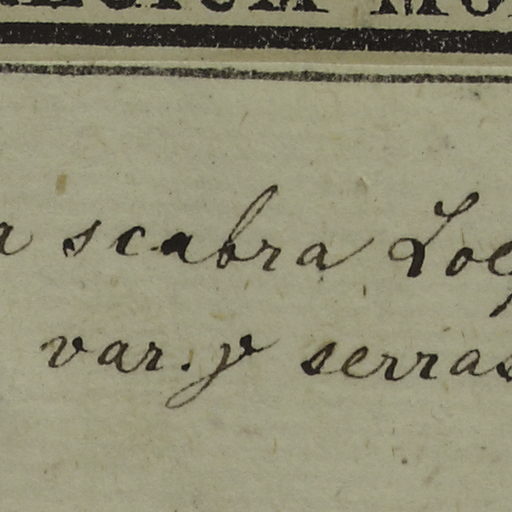 a scabra Loe
var. γ serras